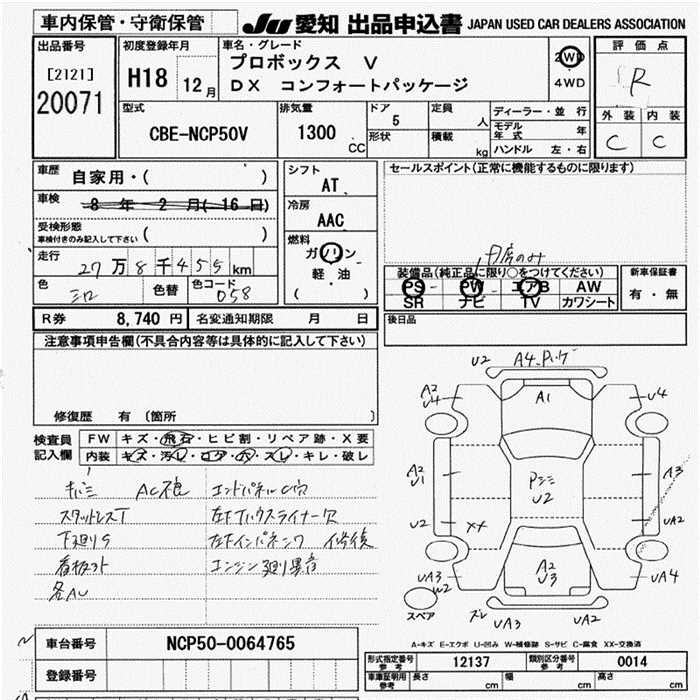 車内保管・守衛保管
JU 愛知 出品申込書 JAPAN USED CAR DEALERS ASSOCIATION
出品番号
[2121]
20071
初度登録年月
H18 12月
車名・グレード
プロボックス V
DX コンフォートパッケージ
2WD
4WD
評価点
R
外装 内装
C C
型式
CBE-NCP50V
排気量
1300
CC
ドア
5
形状
定員
人
積載
kg
ディーラー・並行
モデル年式 年
ハンドル 左・右
車歴
自家用・( )
車検
8 年 2 月( 16 日)
受検形態
車検付きのみ記入して下さい ( )
走行
27万8千455km
色
シロ
色替
色コード
058
シフト
AT
冷房
AAC
燃料
ガソリン
軽・油
( )
セールスポイント(正常に機能するものに限ります)
内房のみ
装備品(純正品に限り○をつけてください)
PS PW エアB AW
SR ナビ TV カワシート
新車保証書
有・無
後日品
R券 8,740 円 名変通知期限 月 日
注意事項申告欄(不具合内容等は具体的に記入して下さい)
修復歴 有 〔箇所 〕
検査員
記入欄
FW キズ・飛石・ヒビ割・リペア跡・X要
内装 キズ・汚レ・コゲ・穴・スレ・キレ・破レ
キバミ AC
エンドパネルC穴
スタットレスT
左下Tハウスライナー欠
下廻りS
左下インパネンワ 修復
看板
エンジン廻り異音
各AU
U2
A4
A2
U4
A1
U4
A2
U1
A3
U2
XX
U2
UA2
UA3
W2
A2
U3
UA4
スペア
スレ UA3
UA2
A-キズ E-エクボ U-凹み W-補修跡 S-サビ C-腐食 XX-交換済
車台番号 NCP50-0064765
登録番号
形式指定番号
参考
12137
類別区分番号
参考
0014
車庫証明用
参考
長さ cm
幅 cm
高さ cm